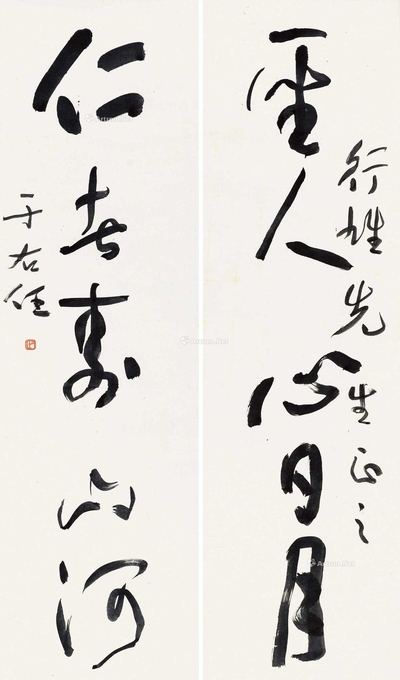 行姓先生正之
聖人心日月
仁者壽山河
于右任